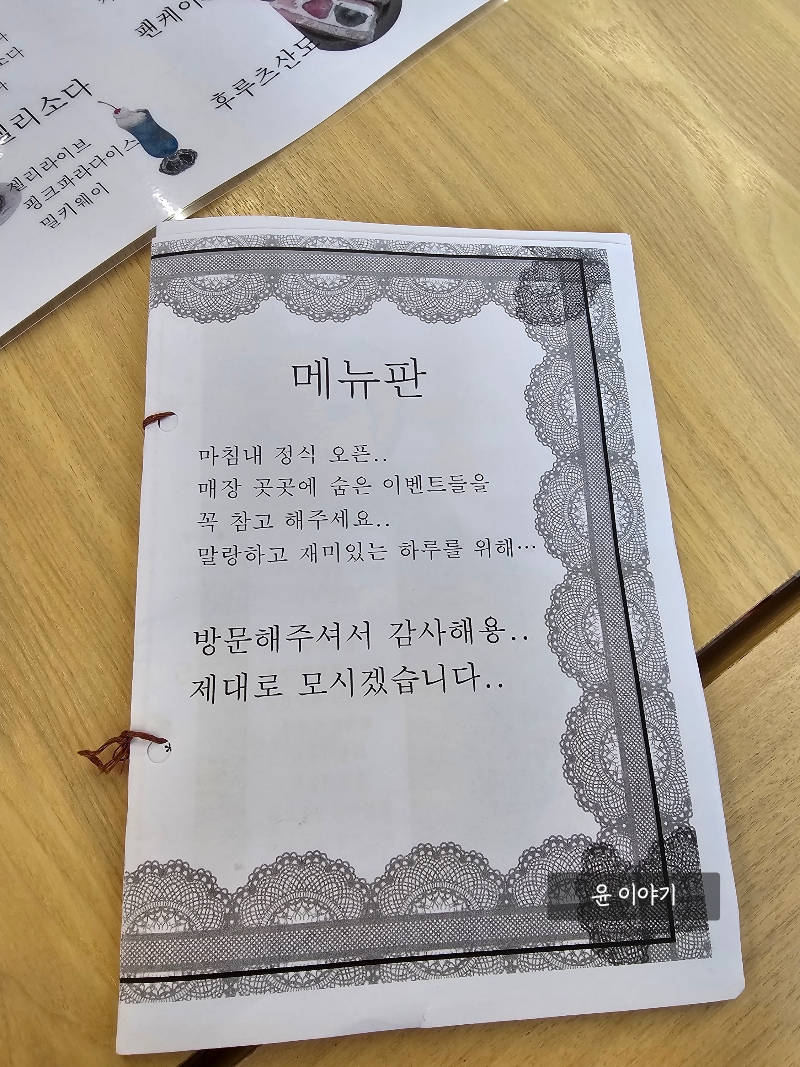 팬케이
후루츠산도
젤리소다
젤리라이브
핑크파라다이스
밀키웨이
메뉴판
마침내 정식 오픈..
매장 곳곳에 숨은 이벤트들을
꼭 참고 해주세요..
말랑하고 재미있는 하루를 위해…
방문해주셔서 감사해용..
제대로 모시겠습니다..
윤 이야기